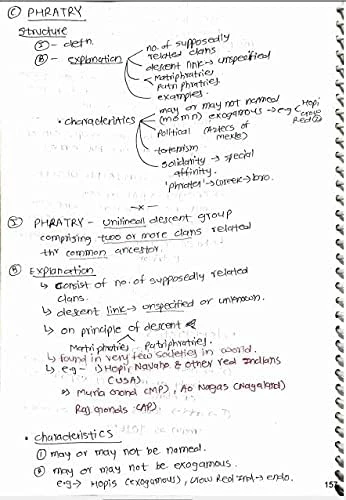 Ⓒ PHRATRY
Structure
Ⓘ - defn.
Ⓑ - explanation
no. of supposedly
related clans
descent link → unspecified
Matriphratries
Patriphratries.
examples.
• characteristics
may or may not named
(mo m n) exogamous → e.g
Hopi
Red
Political (Aztecs of
mexico)
totemism
solidarity → special
affinity.
'phrater' → Greek → bro.
-x-
Ⓘ PHRATRY - Unilineal descent group
comprising two or more clans related
thr common ancestor.
Ⓑ Explanation
↳ consist of no. of supposedly related
clans.
↳ descent link → unspecified or unknown.
↳ on principle of descent
Matriphratries Patriphratries.
↳ found in very few societies in world.
↳ eg - 1) Hopi, Navaho & other red Indians
(USA)
2) Muria Gond (MP), Ao Nagas (Nagaland)
Raj Gonds (AP)
• characteristics
① may or may not be named.
② may or may not be exogamous.
eg → Hopis (exogamous), Crow Red Ind → endo.
157